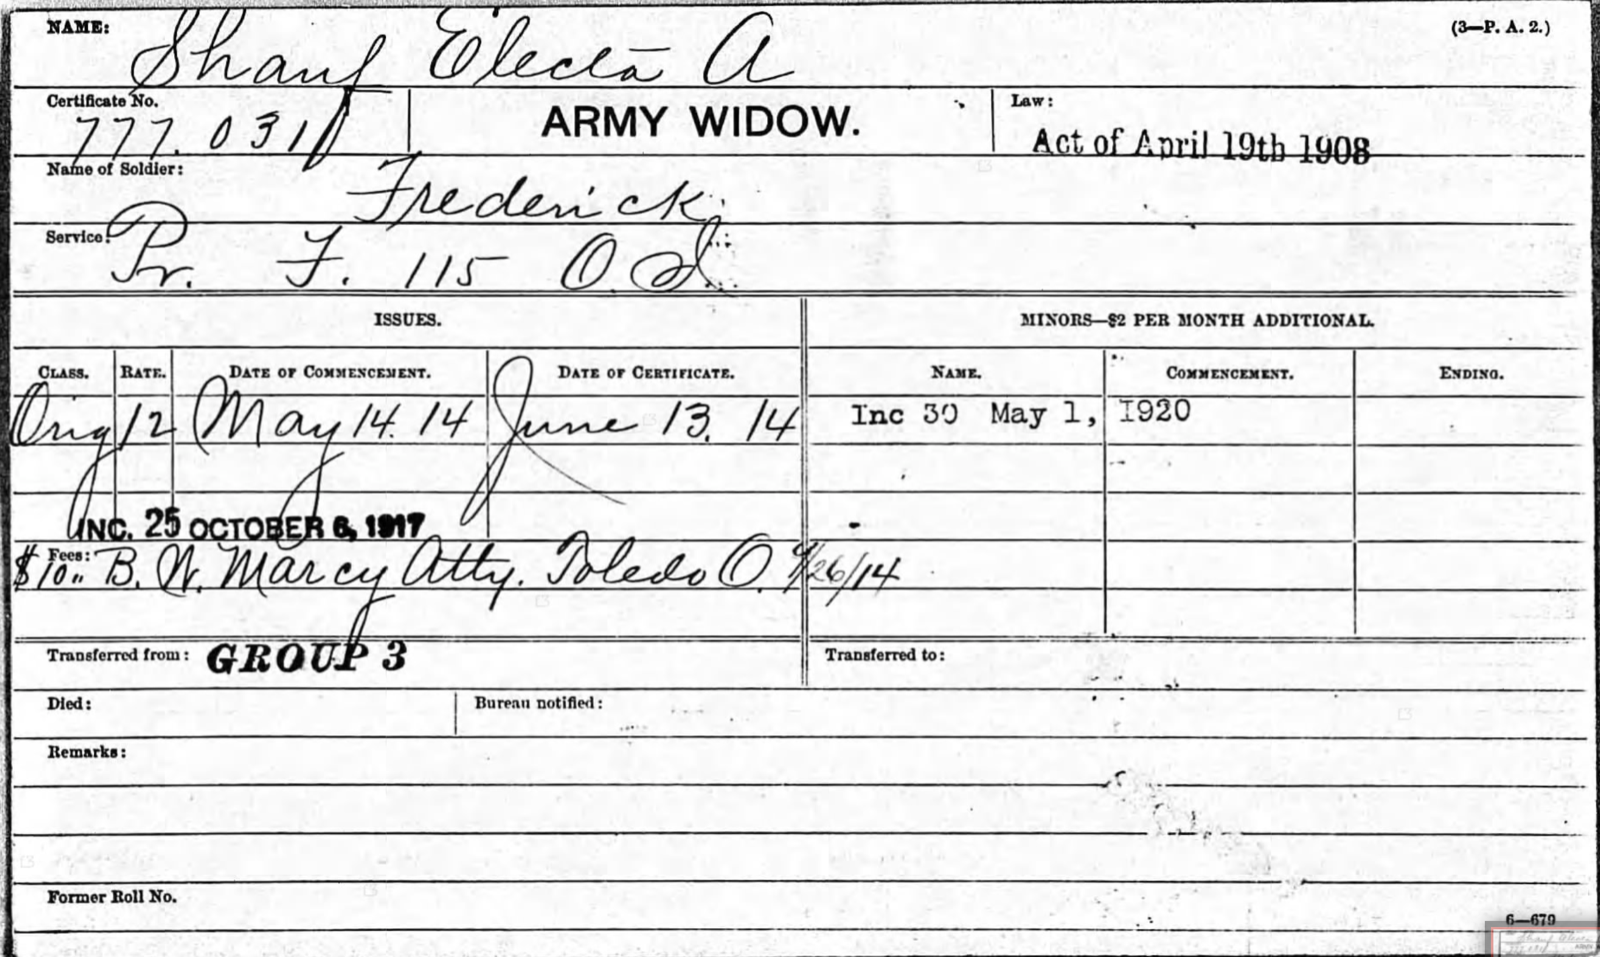 NAME: Sharf Electa A (3—P. A. 2.)
Certificate No. 777.031 ARMY WIDOW. Law: Act of April 19th 1908
Name of Soldier: Frederick
Service: Pr. F. 115 O. I.
ISSUES. MINORS—$2 PER MONTH ADDITIONAL.
CLASS. RATE. DATE OF COMMENCEMENT. DATE OF CERTIFICATE. NAME. COMMENCEMENT. ENDING.
Orig 12 May 14. 14 June 13. 14 Inc 30 May 1, 1920
INC. 25 OCTOBER 6, 1917
Fees: $10.. B. W. Marcy Atty. Toledo O. 9/26/14
Transferred from: GROUP 3 Transferred to:
Died: Bureau notified:
Remarks:
Former Roll No.
6—679